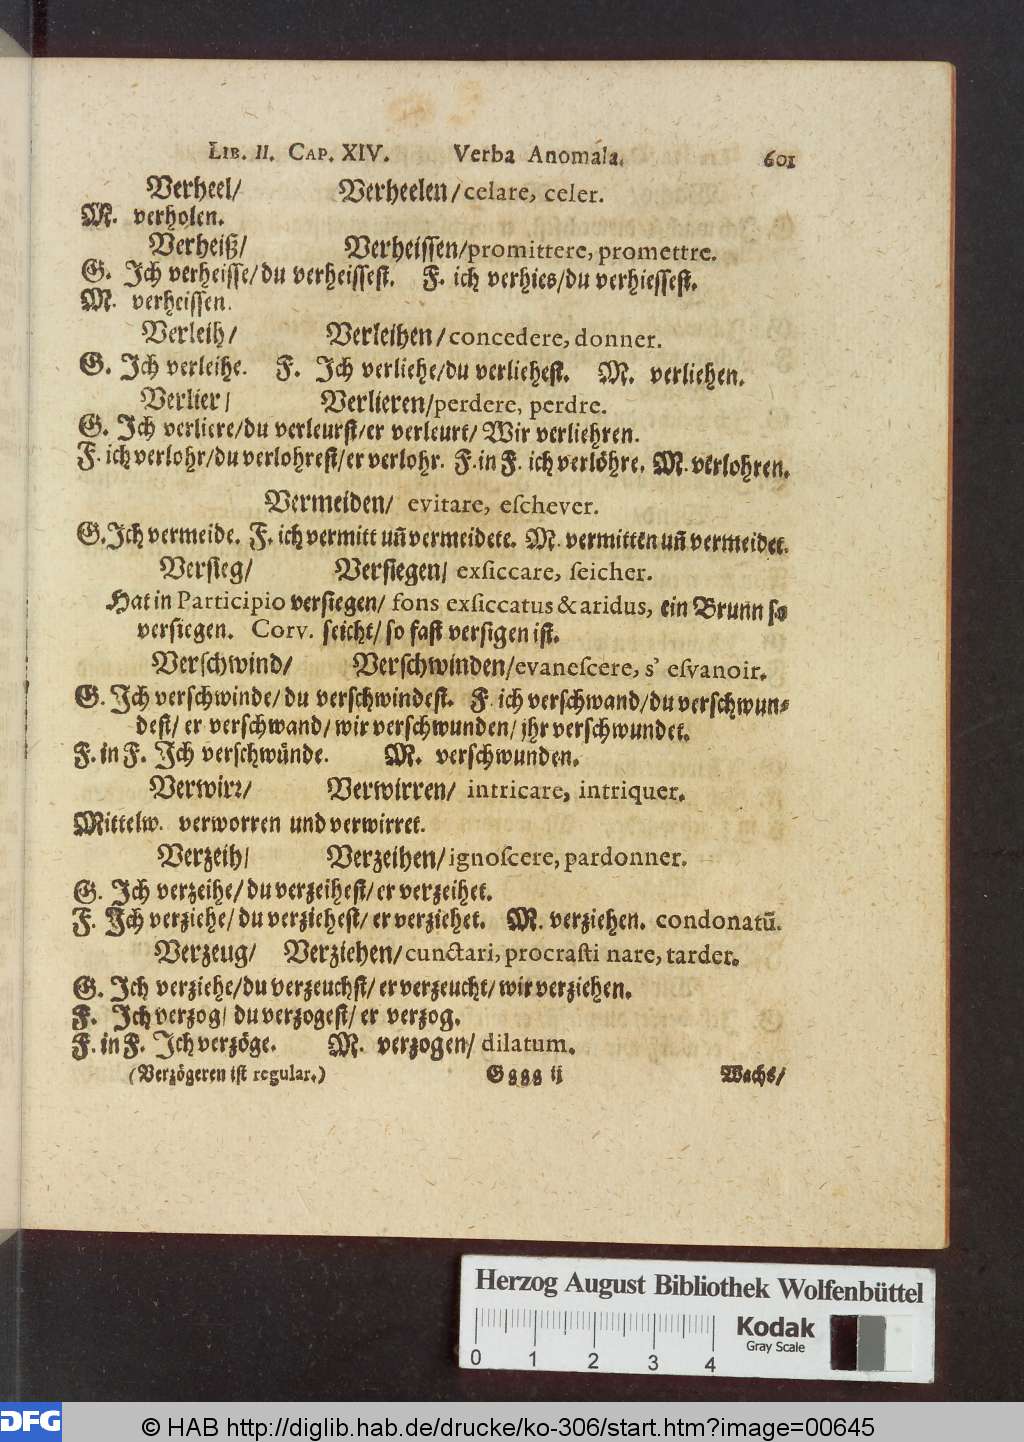 LIB. II. CAP. XIV. Verba Anomala. 601
Verheel/ Verheelen/ celare, celer.
M. verholen.
Verheiß/ Verheissen/promittere, promettre.
G. Ich verheisse/du verheissest. F. ich verhies/du verhiessest.
M. verheissen.
Verleih/ Verleihen/concedere, donner.
G. Ich verleihe. F. Ich verliehe/du verliehest. M. verliehen.
Verlier/ Verlieren/perdere, perdre.
G. Ich verliere/du verleurst/er verleurt/ Wir verliehren.
F. ich verlohr/du verlohrest/er verlohr. F. in F. ich verlöhre. M. verlohren.
Vermeiden/ evitare, eſchever.
G. Ich vermeide. F. ich vermitt uñ vermeidete. M. vermitten uñ vermeidet.
Versieg/ Versiegen/ exſiccare, ſeicher.
Hat in Participio versiegen/ fons exſiccatus & aridus, ein Brunn so
versiegen. Corv. seicht/ so fast versigen ist.
Verschwind/ Verschwinden/evaneſcere, s' eſvanoir.
G. Ich verschwinde/ du verschwindest. F. ich verschwand/du verschwun-
dest/ er verschwand/ wir verschwunden/ jhr verschwundet.
F. in F. Ich verschwünde. M. verschwunden.
Verwirr/ Verwirren/ intricare, intriquer.
Mittelw. verworren und verwirret.
Verzeih/ Verzeihen/ignoſcere, pardonner.
G. Ich verzeihe/ du verzeihest/ er verzeihet.
F. Ich verziehe/ du verziehest/ er verziehet. M. verziehen. condonatũ.
Verzeug/ Verziehen/cunctari, procraſti nare, tarder.
G. Ich verziehe/du verzeuchst/ er verzeucht/ wir verziehen.
F. Ich verzog/ du verzogest/ er verzog.
F. in F. Ich verzöge. M. verzogen/ dilatum.
(Verzögeren ist regular.) Gggg ij Wachs/
Herzog August Bibliothek Wolfenbüttel
Kodak
Gray Scale
0 1 2 3 4
DFG © HAB http://diglib.hab.de/drucke/ko-306/start.htm?image=00645